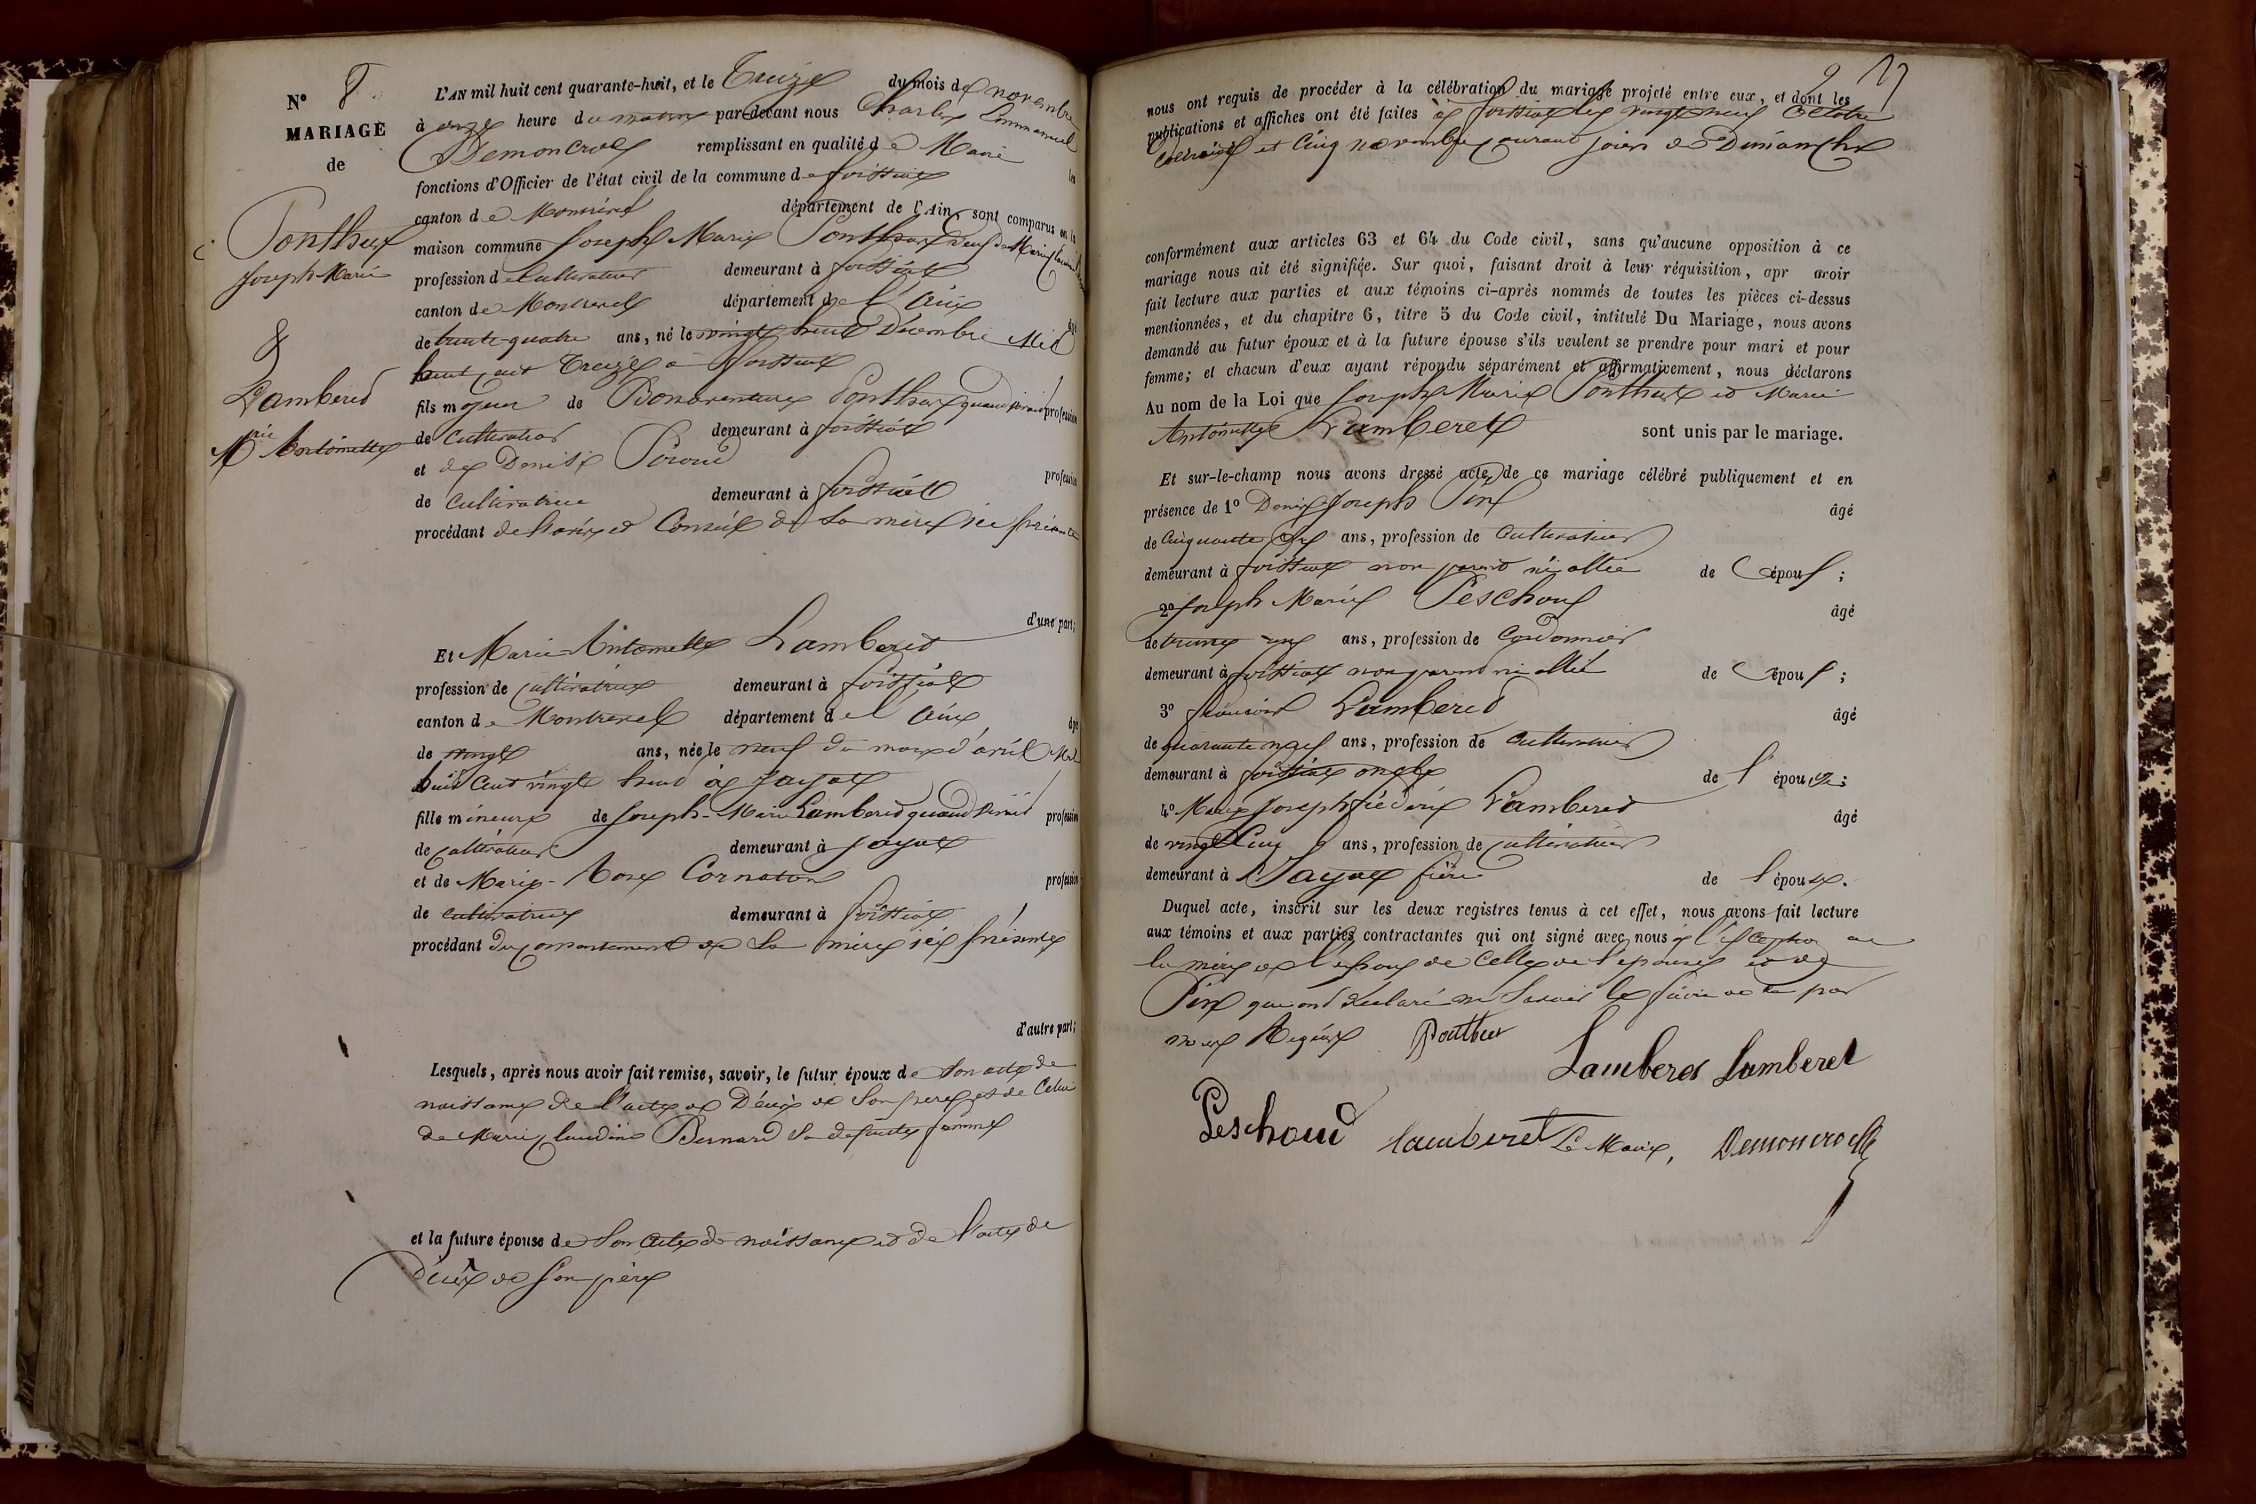 N° 8
MARIAGE
de
Ponthus
Joseph Marie
&
Lamberet
Mie Antoinette
L'AN mil huit cent quarante-huit, et le Treize du mois de novembre
à onze heure du matin par devant nous Charles Emmanuel
Demoncroz remplissant en qualité de Maire les
fonctions d'Officier de l'état civil de la commune de foissiat
canton de Montrevel département de l'Ain, sont comparus en la
maison commune Joseph Marie Ponthus veuf de Marie
profession de Cultivateur demeurant à foissiat
canton de Montrevel département de l'Ain âgé
de trente-quatre ans, né le vingt huit Décembre Mil
huit cent Treize à foissiat
fils majeur de Bonaventure Ponthus quand vivait profession
de Cultivateur demeurant à foissiat
et de Denise Piroud profession
de Cultivatrice demeurant à foissiat
procédant de l'avis et Conseil de sa mère ici présente
d'une part;
Et Marie-Antoinette Lamberet
profession de cultivatrice demeurant à foissiat
canton de Montrevel département de l'Ain âgé
de vingt ans, née le neuf du mois d'avril Mil
huit Cent vingt huit à Jayat
fille mineure de Joseph-Marie Lamberet quand vivait profession
de cultivateur demeurant à Jayat
et de Marie-Rose Cornaton profession
de cultivatrice demeurant à foissiat
procédant du consentement de sa mère ici présente
d'autre part;
Lesquels, après nous avoir fait remise, savoir, le futur époux de son acte de
naissance de l'acte de Décès de son père et de Celui
de Marie Claudine Bernard sa défunte femme
et la future épouse de son acte de naissance et de l'acte de
Décès de son père
nous ont requis de procéder à la célébration du mariage projeté entre eux, et dont les
publications et affiches ont été faites à foissiat les vingt neuf Octobre
et Cinq novembre courant jours de Dimanche
conformément aux articles 63 et 64 du Code civil, sans qu'aucune opposition à ce
mariage nous ait été signifiée. Sur quoi, faisant droit à leur réquisition, apr avoir
fait lecture aux parties et aux témoins ci-après nommés de toutes les pièces ci-dessus
mentionnées, et du chapitre 6, titre 5 du Code civil, intitulé Du Mariage, nous avons
demandé au futur époux et à la future épouse s'ils veulent se prendre pour mari et pour
femme; et chacun d'eux ayant répondu séparément et affirmativement, nous déclarons
Au nom de la Loi que Joseph Marie Ponthus et Marie
Antoinette Lamberet sont unis par le mariage.
Et sur-le-champ nous avons dressé acte de ce mariage célébré publiquement et en
présence de 1° Denis Joseph Pin âgé
de Cinquante ans, profession de Cultivateur
demeurant à foissiat non parent ni allié de époux;
2° Joseph Marie Peschoud âgé
de trente ans, profession de Cordonnier
demeurant à foissiat non parent ni allié de époux;
3° françois Lamberet âgé
de quarante neuf ans, profession de Cultivateur
demeurant à foissiat oncle de l'épouse;
4° Marie Joseph frédéric Lamberet âgé
de vingt Cinq ans, profession de cultivateur
demeurant à Jayat frère de l'épouse.
Duquel acte, inscrit sur les deux registres tenus à cet effet, nous avons fait lecture
aux témoins et aux parties contractantes qui ont signé avec nous à l'exception de
la mère de l'époux de Celle de l'épouse et de
Pin qui ont déclaré ne savoir le faire de ce par
nous Requis Ponthus
Lamberet Lamberet
Peschoud Lamberet Le Maire, Demoncroz